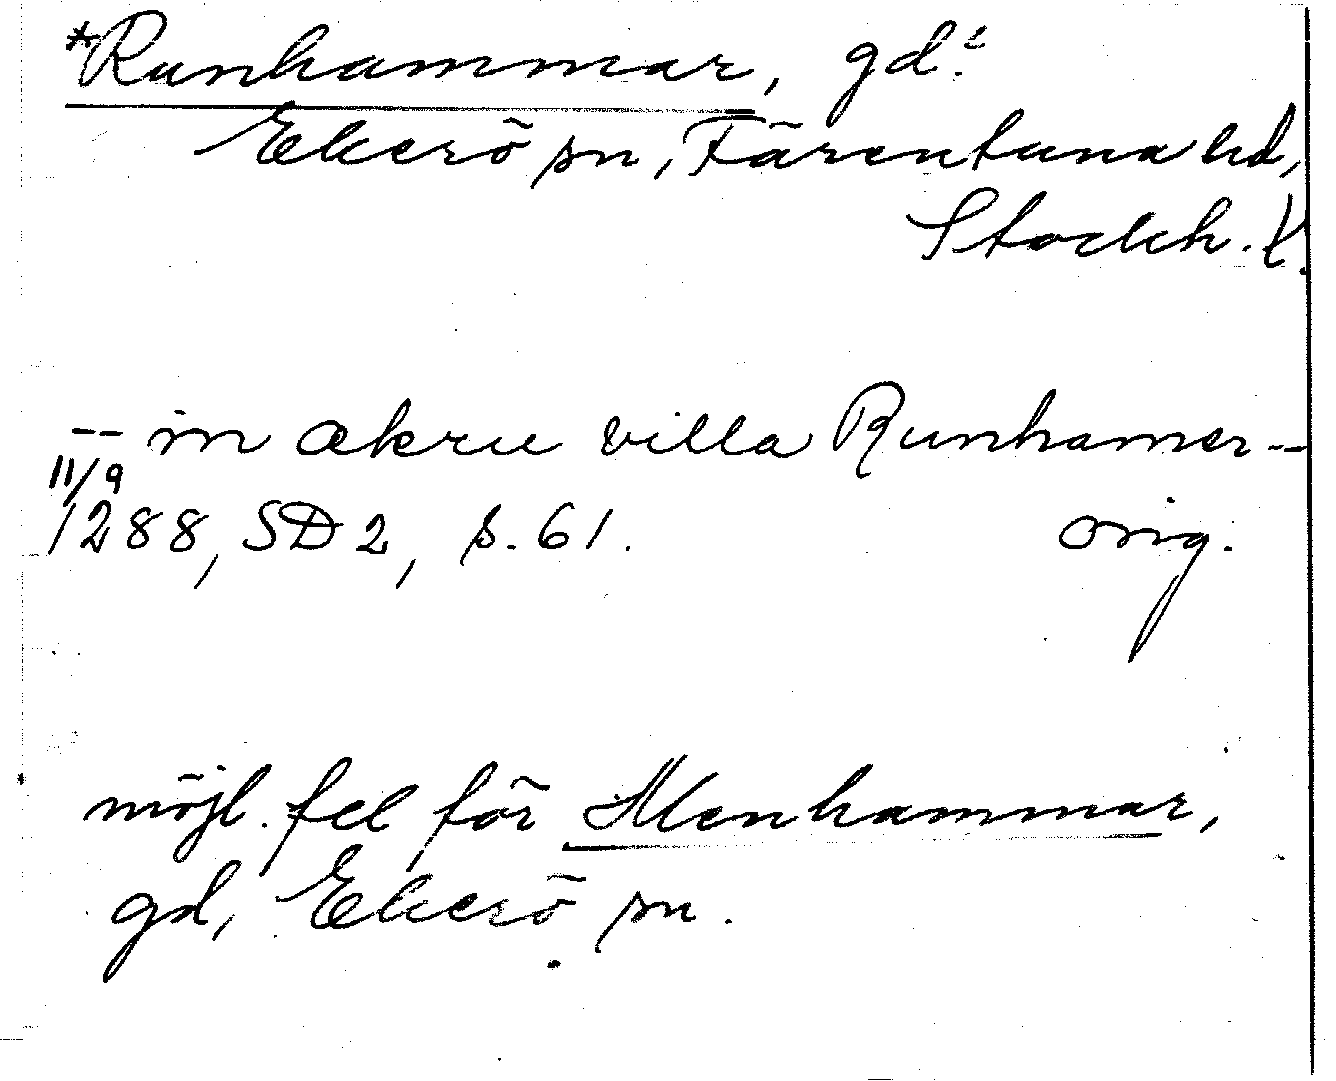 *Runhammar, gd?
Ekerö sn, Färentuna hd,
Stockh. l.
-- in økru villa Runhamer --
11/9
1288, SD 2, s. 61. orig.
möjl. fel för Menhammar,
gd, Ekerö sn.